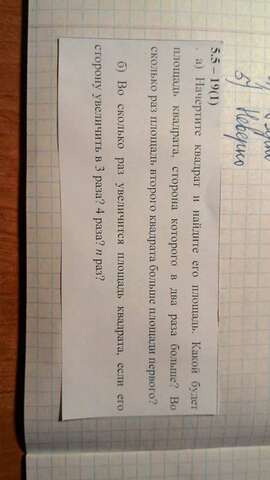 5.5 – 19(1)
. а) Начертите квадрат и найдите его площадь. Какой будет
площадь квадрата, сторона которого в два раза больше? Во
сколько раз площадь второго квадрата больше площади первого?
б) Во сколько раз увеличится площадь квадрата, если его
сторону увеличить в 3 раза? 4 раза? n раз?
б) Неверно